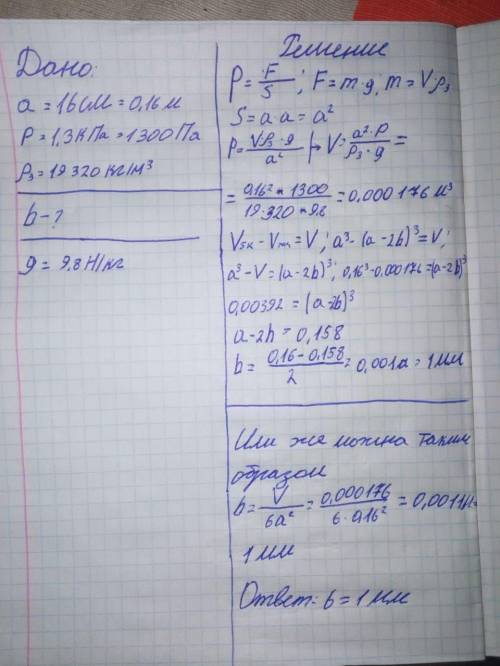 Дано:
a = 16см = 0,16 м
P = 1,3кПа = 1300 Па
ρз = 19 320 кг/м³
b - ?
g = 9.8 Н/кг
Решение
P = F/S ; F = m·g; m = V·ρз
S = a·a = a²
P = Vρз·g/a² |→ V = a²·P/ρз·g =
= 0,16² * 1300/19·320 * 9.8 = 0,000 176 м³
Vбк - Vмк = V ; a³ - (a - 2b)³ = V ;
a³ - V = (a - 2b)³ ; 0,16³ - 0,000176 = (a - 2b)³
0,00392 = (a - 2b)³
a - 2b = 0,158
b = 0,16 - 0,158/2 = 0,001м = 1мм
Или же можна таким
образом
b = V/6a² = 0,000176/6·0,16² = 0,0011м =
1 мм
Ответ: b = 1 мм